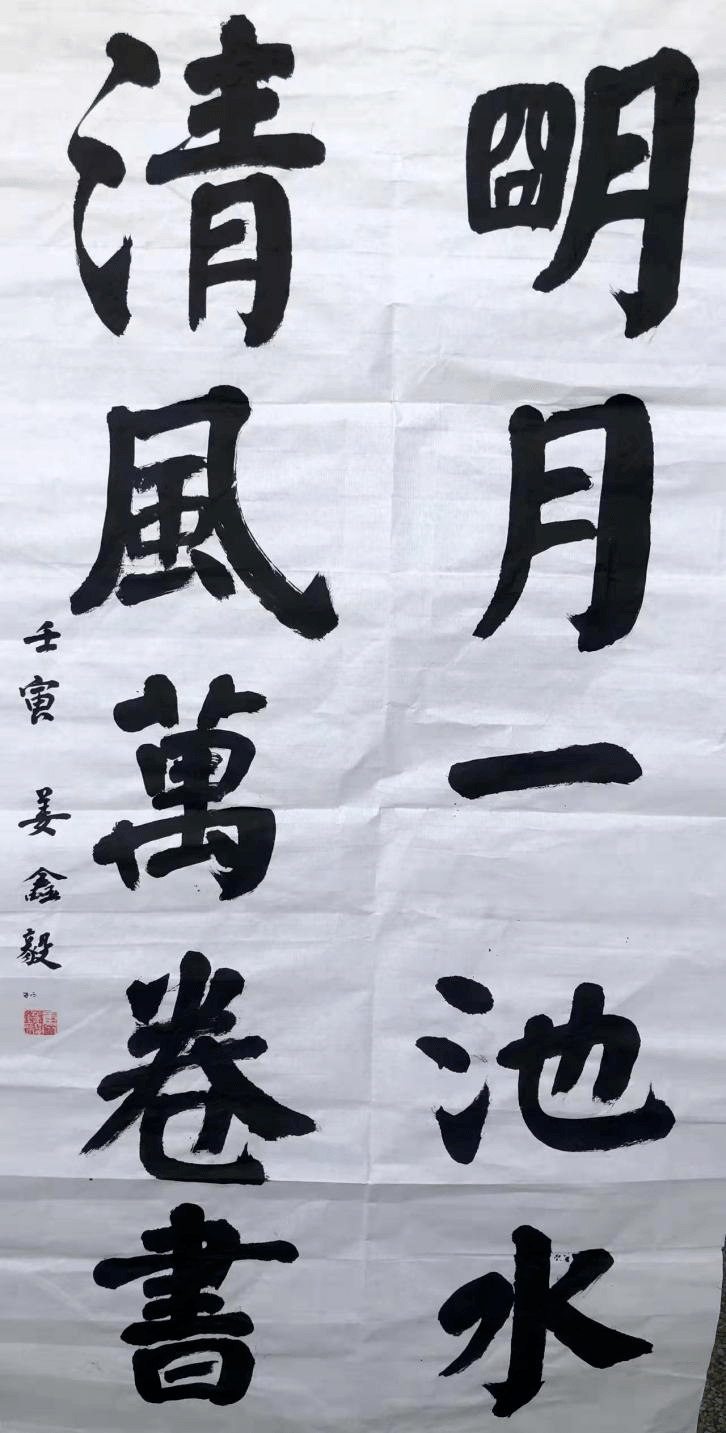 明月一池水
清風萬卷書
壬寅 姜鑫毅